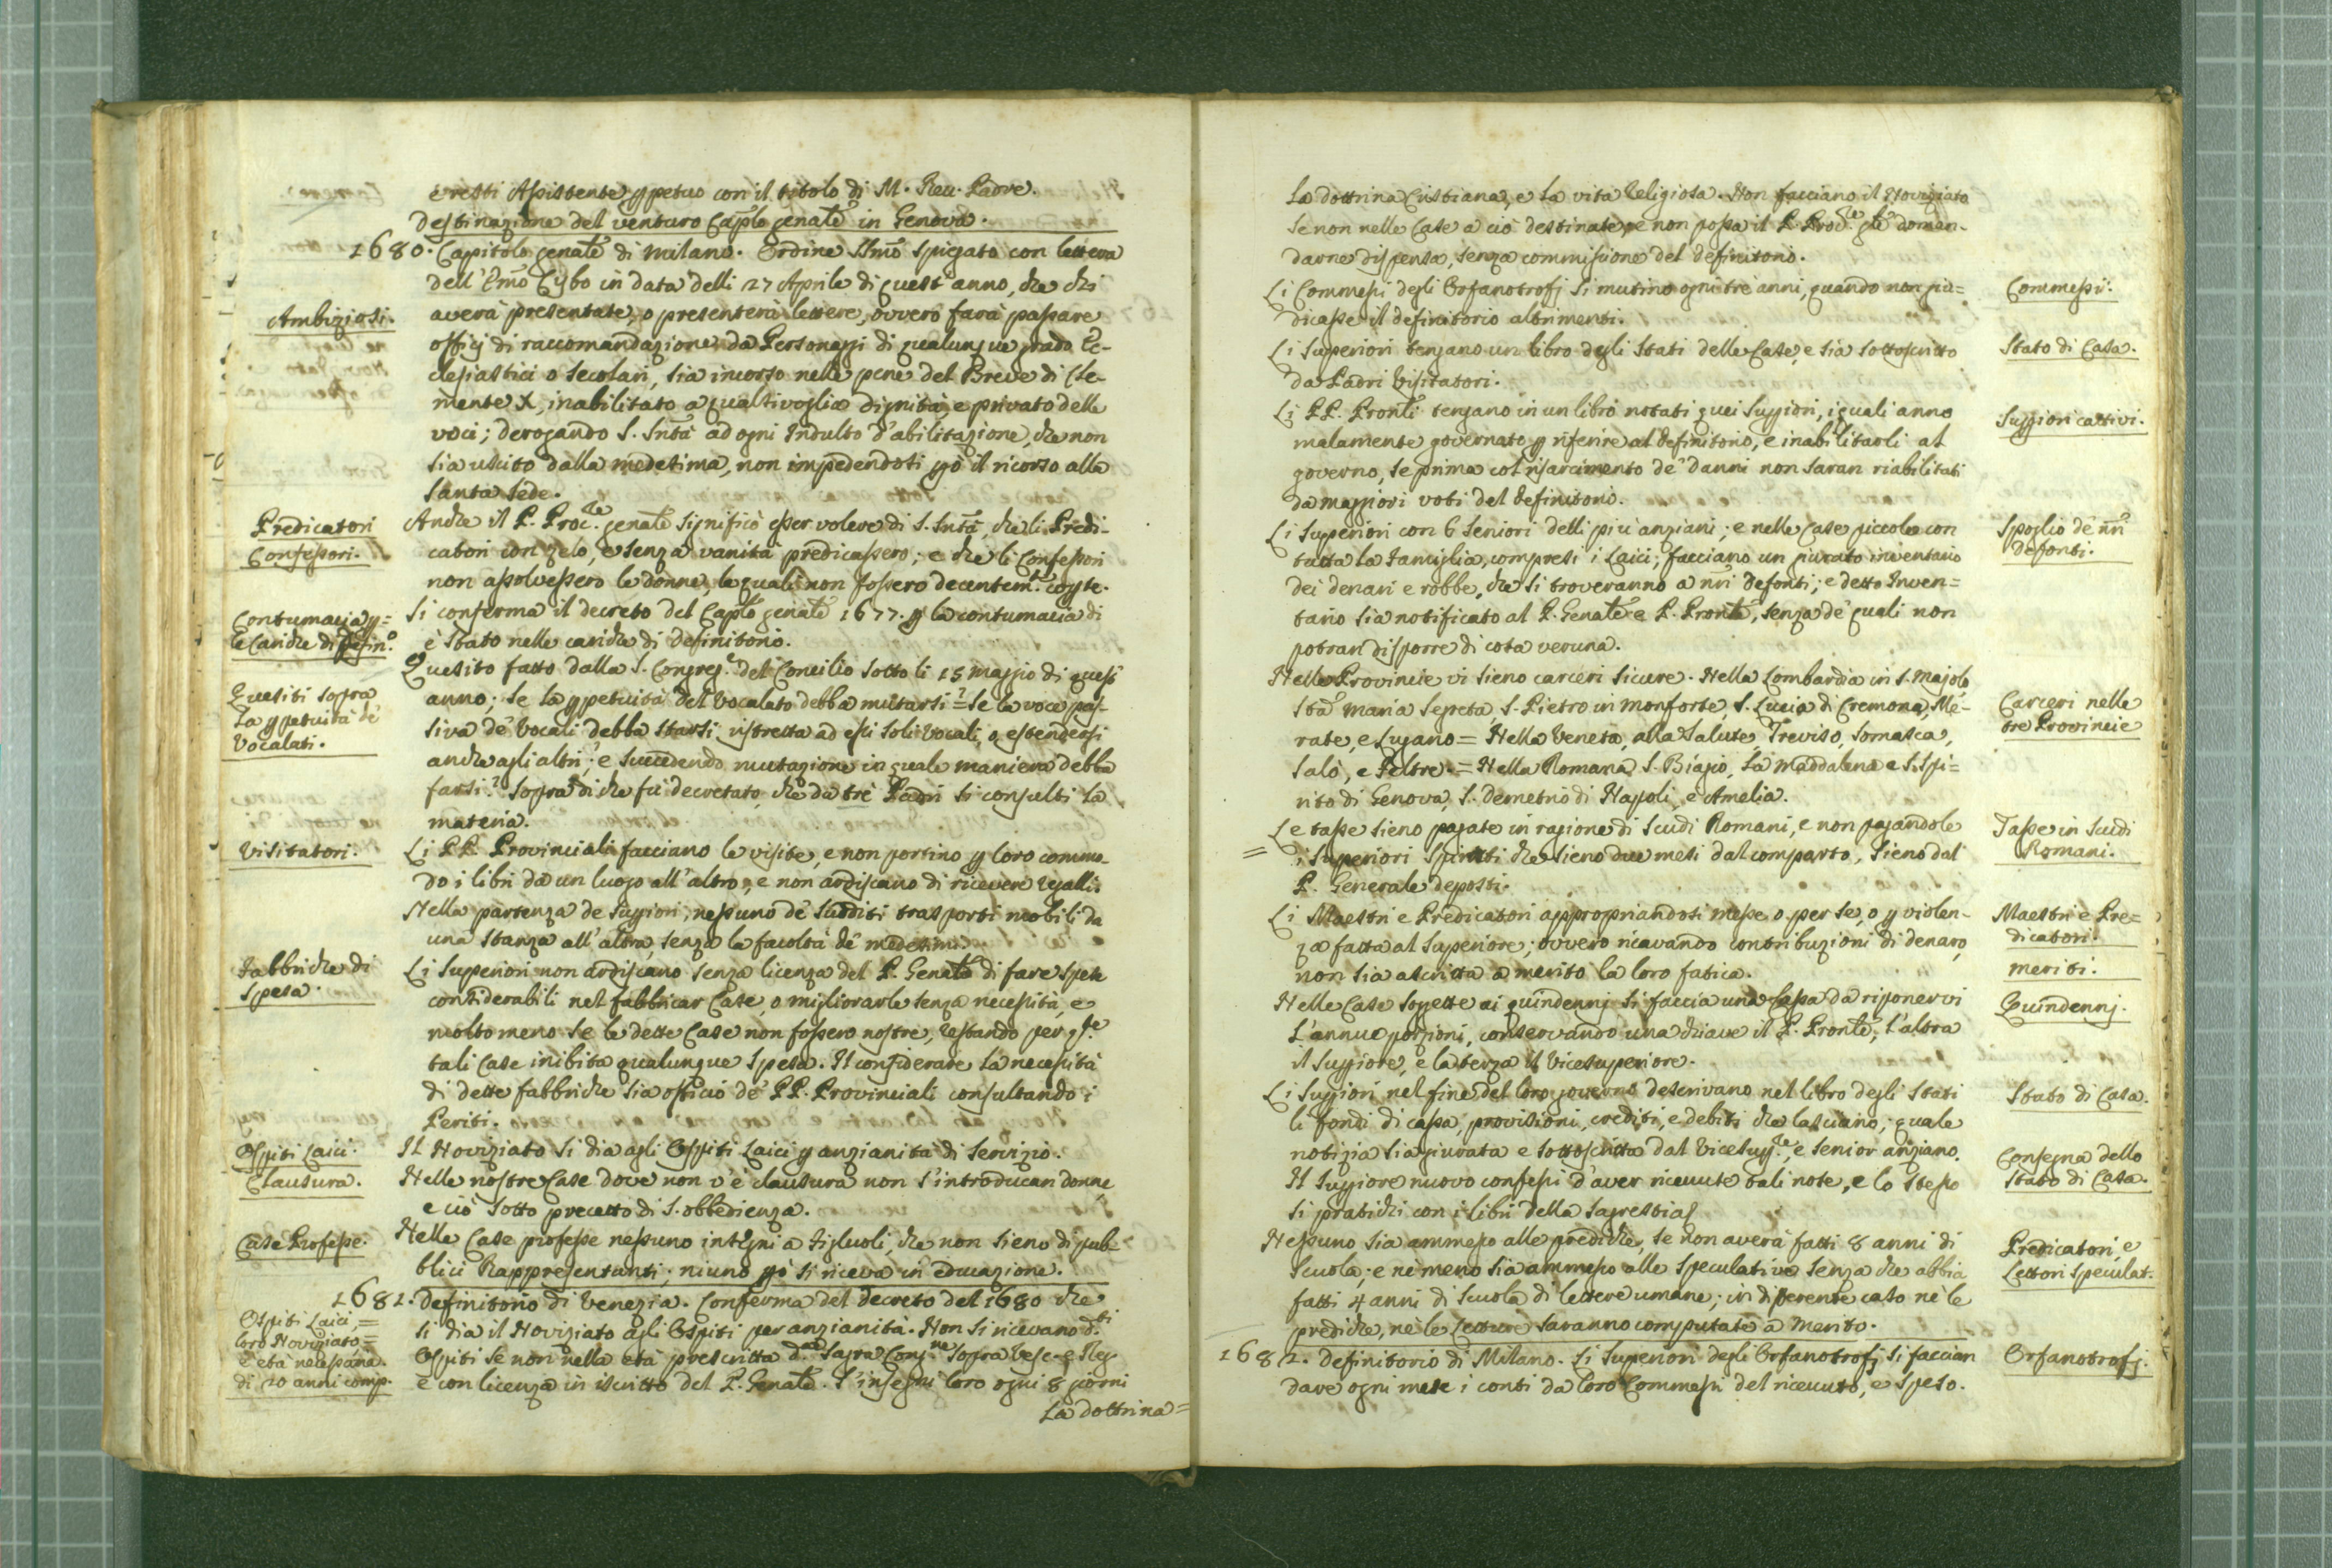 eretti Assistente ppetuo con il titolo di M. Rev. Padre.
Destinazione del venturo Caplo genale in Genova.
1680. Capitolo genale di Milano. Ordine SSmo spiegato con lettera
dell'Emo Cybo in data delli 27 Aprile di quest'anno, che chi
Ambiziosi.
averà presentate, o presenterà lettere, ovvero farà passare
officj di raccomandazione da Personaggi di qualunque grado Ec-
clesiastici o Secolari, sia incorso nelle pene del Breve di Cle-
mente X, inabilitato a qualsivoglia dignità, e privato delle
voci; derogando S. Sntà ad ogni Indulto d'abilitazione, che non
sia uscito dalla medesima, non impedendosi pò il ricorso alla
Santa Sede.
Predicatori
Confessori.
Anche il P. Proc.le genale significò esser volere di S. Sntà, che li Predi-
catori con zelo, e senza vanità predicassero; e che li Confessori
non assolvessero le donne, le quali non fossero decentem.te copte.
Contumacia p=
le Cariche di Defin.o
Si conferma il decreto del Caplo genale 1677. p la contumacia di
è stato nelle cariche di Definitorio.
Quesiti sopra
la ppetuità de'
Vocalati.
Quesito fatto dalla S. Congreg.e del Concilio sotto li 15 Maggio di quest'
anno; se la ppetuità del Vocalato debba mutarsi? = Se la voce pas-
siva de' Vocali debba starsi ristretta ad essi soli Vocali, o estendersi
anche agli altri; e succedendo mutazione in quale maniera debba
farsi? Sopra di che fù decretato, che da trè Padri si consulti la
materia.
Visitatori.
Li PP. Provinciali facciano le visite, e non portino p loro commo-
do i libri da un luogo all'altro, e non ardiscano di ricevere regalli.
Nella partenza de Suppiori, nessuno de' Sudditi trasporti mobili da
una stanza all'altra, senza la facoltà de' medesimi.
Fabbriche di
spesa.
Li Superiori non ardiscano senza licenza del P. Genale di fare spese
considerabili nel fabbricar Case, o migliorarle senza necessità, e
molto meno se le dette Case non fossero nostre, restando per q.ste
tali Case inibita qualunque spesa. Il considerare la necessità
di dette fabbriche sia officio de' PP. Provinciali consultando i
Periti.
Ospiti Laici.
Il Noviziato si dia agli Ospiti Laici p anzianità di servizio.
Clausura.
Nelle nostre Case dove non v'è clausura non s'introducan donne,
e ciò sotto precetto di S. obbedienza.
Case Professe.
Nelle Case professe nessuno insegni a figluoli, che non sieno di pub-
blici Rappresentanti; niuno pò si riceva in educazione.
1681. Definitorio di Venezia. Conferma del decreto del 1680 che
Ospiti Laici, =
loro Noviziato, =
e età necessaria.
di 20 anni comp.
si dia il Noviziato agli Ospiti per anzianità. Non si ricevano d.ti
Ospiti se non nella età prescritta d.a Sagra Cong.ne sopra Vesc. e Reg.
e con licenza in iscritto del P. Genale. S'insegni loro ogni 8 giorni
la dottrina =
la dottrina Cristiana, e la vita Religiosa. Non facciano il Noviziato
se non nelle Case a ciò destinate, e non possa il P. Proc.le gle doman-
darne dispensa, senza commissione del Definitorio.
Li Commessi degli Orfanotrofj si mutino ogni trè anni, quando non giu=
dicasse il Definitorio altrimenti.
Commessi.
Li Superiori tengano un libro degli Stati delle Case, e sia sottoscritto
da Padri Visitatori.
Stato di Casa.
Li PP. Pronli tengano in un libro notati quei Suppiori, i quali anno
malamente governato p riferire al Definitorio, e inabilitarli al
governo, se prima col risarcimento de' danni non saran riabilitati
da maggiori voti del Definitorio.
Suppiori cattivi.
Li Superiori con 6 Seniori delli più anziani; e nelle Case piccole con
tutta la Famiglia, compresi i Laici, facciano un giurato inventario
dei denari e robbe, che si troveranno a nri Defonti; e detto Inven=
tario sia notificato al P. Genale e P. Pronle, senza de' quali non
potran disporre di cosa veruna.
Spoglio de' nri
Defonti.
Nelle Provincie vi sieno carceri sicure. Nella Lombardia in S. Majolo
Sta Maria Segreta, S. Pietro in Monforte, S. Lucia di Cremona, Me-
rate, e Lugano = Nella Veneta, alla Salute, Treviso, Somasca,
Salò, e Feltre. = Nella Romana S. Biagio, La Maddalena e S. Spi=
rito di Genova, S. Demetrio di Nappoli, e Amelia.
Carceri nelle
tre Provincie
Le tasse sieno pagate in ragione di Scudi Romani, e non pagandole
i Superiori spirati che sieno due mesi dal comparto, sieno dal
P. Generale deposti.
Tasse in Scudi
Romani.
Li Maestri e Predicatori appropriandosi messe o per se, o p violen-
za fatta al Superiore; ovvero ricavando contribuzioni di denaro,
non sia ascritta a merito la loro fatica.
Maestri e Pre=
dicatori.
meriti.
Nelle Case soggette ai quindennj si faccia una Cassa da riponervi
l'annue porzioni, conservando una chiave il P. Pronle, l'altra
il Suppiore, e la terza il Vicesuperiore.
Quindennj.
Li Suppiori nel fine del loro governo descrivano nel libro degli Stati
li fondi di cassa, provisioni, crediti, e debiti che lasciano; quale
notizia sia giurata e sottoscritta dal Vicesup.re, e Senior anziano.
Stato di Casa.
Il Suppiore nuovo confessi d'aver ricevute tali note, e lo stesso
si pratichi con i libri della Sagrestia.
Consegna dello
Stato di Casa.
Nessuno sia ammesso alle prediche, se non averà fatti 8 anni di
Scuola; e ne meno sia ammesso alle speculative senza che abbia
fatti 4 anni di scuola di lettere umane; in differente caso nè le
prediche, nè le Letture saranno computate a merito.
Predicatori, e
Lettori speculat.
1682. Definitorio di Milano. Li Superiori degli Orfanotrofj si faccian
dare ogni mese i conti da loro Commessi del ricevuto, e speso.
Orfanotrofj.